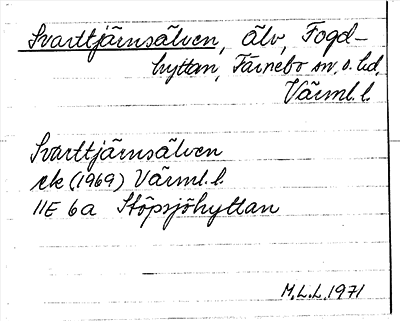 Svarttjärnsälven, älv, Fogd-
hyttan, Färnebo sn, o. hd,
Värml. l.
Svarttjärnsälven
ek (1969) Värml. l.
11E 6a Stöpsjöhyttan
M.L.L. 1971